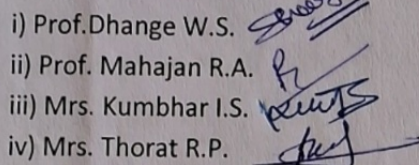 i) Prof.Dhange W.S.
ii) Prof. Mahajan R.A.
iii) Mrs. Kumbhar I.S.
iv) Mrs. Thorat R.P.